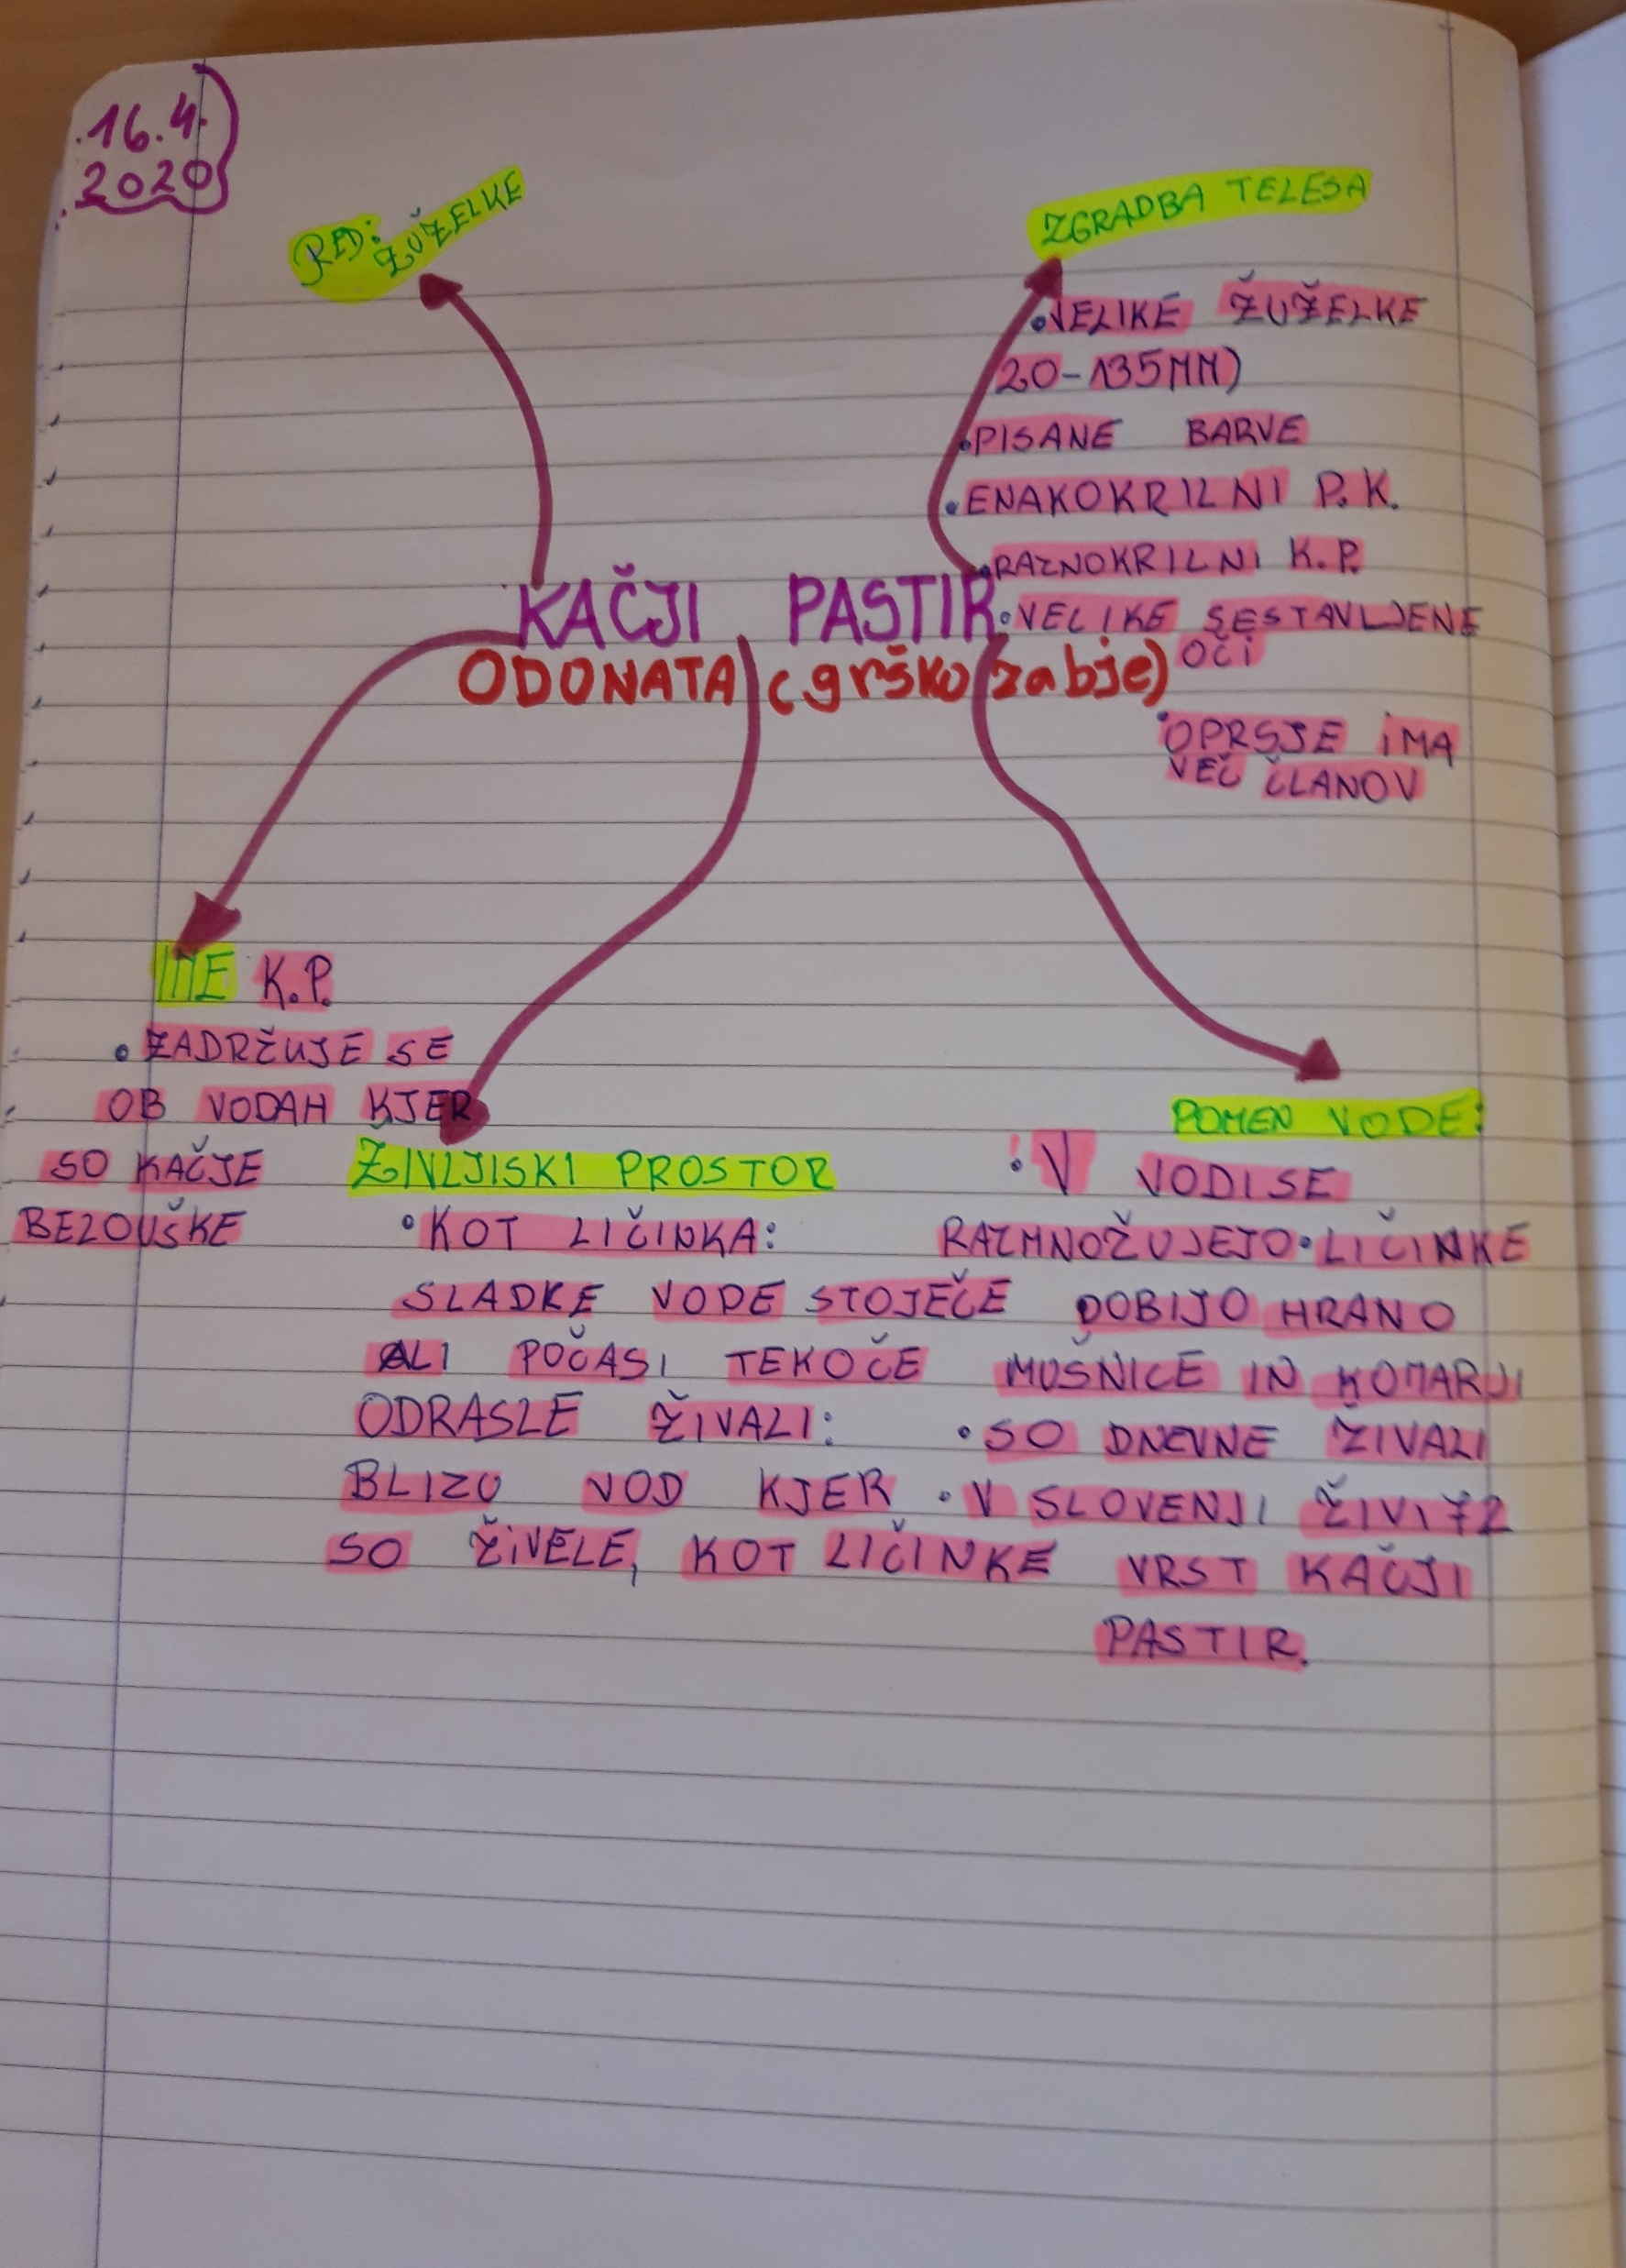 16.4.
2020
RED:
ŽUŽELKE
ZGRADBA TELESA
•VELIKE ŽUŽELKE
20-135MM)
•PISANE BARVE
•ENAKOKRILNI P.K.
•RAZNOKRILNI K.P.
•VELIKE SESTAVLJENE
OČI
•OPRSJE IMA
VEČ ČLANOV
KAČJI PASTIR
ODONATA (grško zabje)
IME K.P.
•ZADRŽUJE SE
OB VODAH KJER
SO KAČJE
BELOUŠKE
ŽIVLJISKI PROSTOR
•KOT LIČINKA:
SLADKE VODE STOJEČE
ALI POČASI TEKOČE
ODRASLE ŽIVALI:
BLIZU VOD KJER
SO ŽIVELE, KOT LIČINKE
POMEN VODE:
•V VODI SE
RAZMNOŽUJEJO•LIČINKE
DOBIJO HRANO
MUŠNICE IN KOMARJI
•SO DNEVNE ŽIVALI
•V SLOVENJI ŽIVI 72
VRST KAČJI
PASTIR.